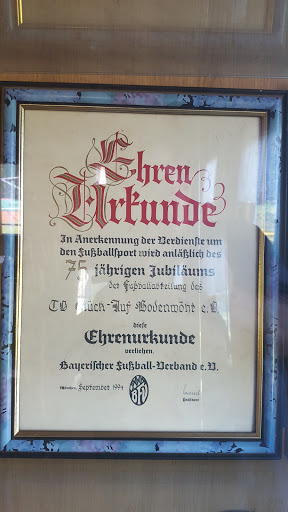 Ehren
Urkunde
In Anerkennung der Verdienste um
den Fußballsport wird anläßlich des
75 jährigen Jubiläums
der Fußballabteilung des
TB Glück-Auf Bodenwöhr e.V.
diese
Ehrenurkunde
verliehen.
Bayerischer Fußball-Verband e.V.
München, September 1994
BFV
Präsident